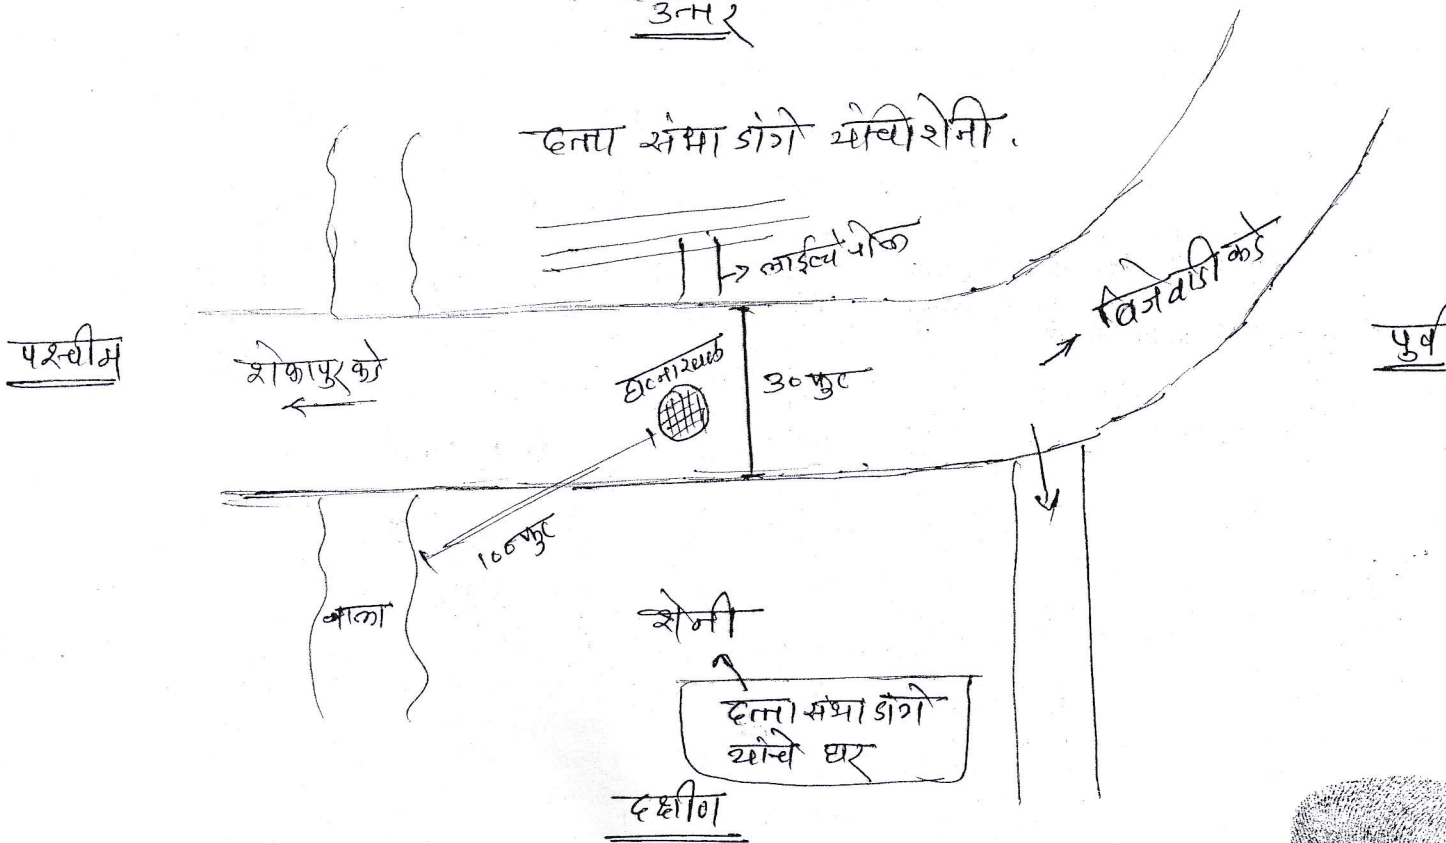 उत्तर
दत्ता संभा डांगे यांची शेती.
→ लाईटचे पोल
विजेवाडी कडे
पश्चीम
शेकापुर कडे
घटनास्थळ
30 फुट
पुर्व
100 फुट
नाला
शेती
दत्ता संभा डांगे
यांचे घर
दक्षीण